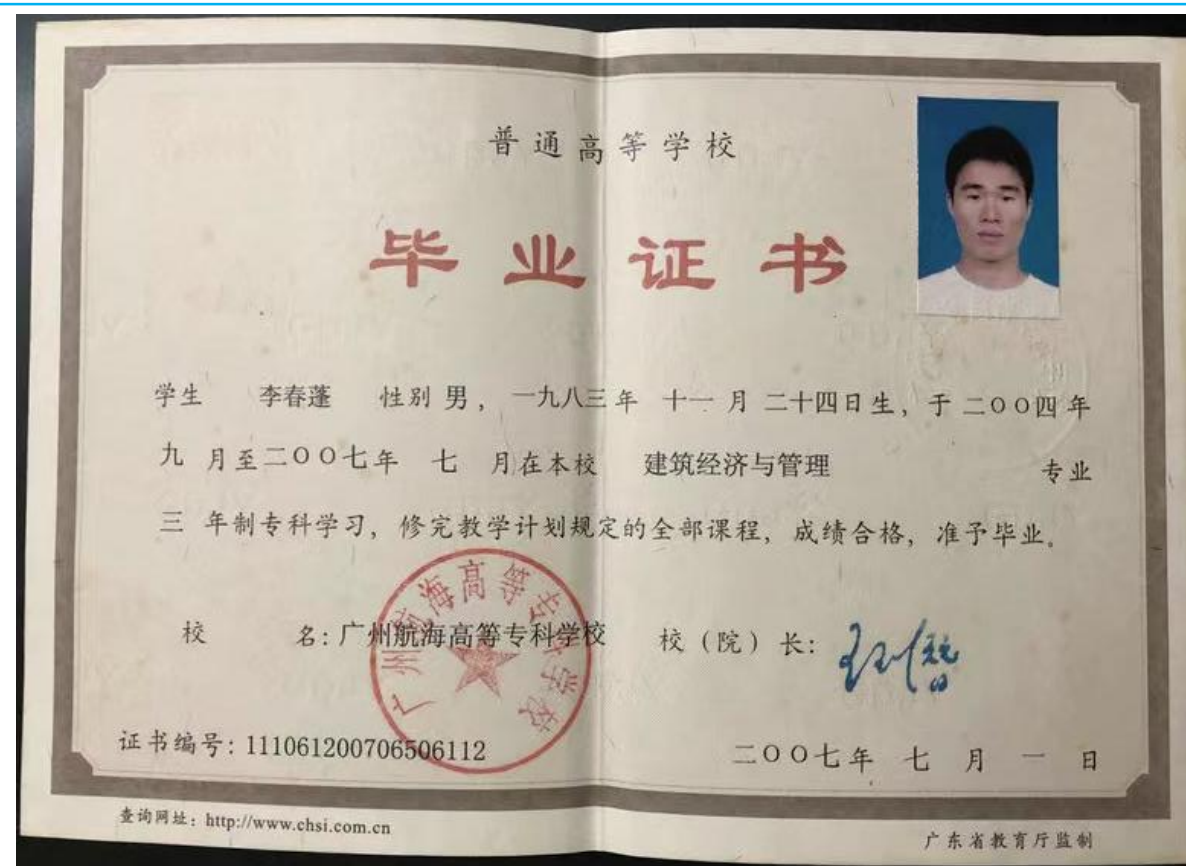 普通高等学校
毕业证书
学生 李春蓬 性别 男, 一九八三年 十一 月 二十四日生, 于 二〇〇四年
九 月至二〇〇七年 七 月在本校 建筑经济与管理 专业
三 年制专科学习, 修完教学计划规定的全部课程, 成绩合格, 准予毕业。
校 名: 广州航海高等专科学校 校 (院) 长:
广州航海高等专科学校
证书编号: 111061200706506112 二〇〇七年 七 月 一 日
查询网址: http://www.chsi.com.cn 广东省教育厅监制